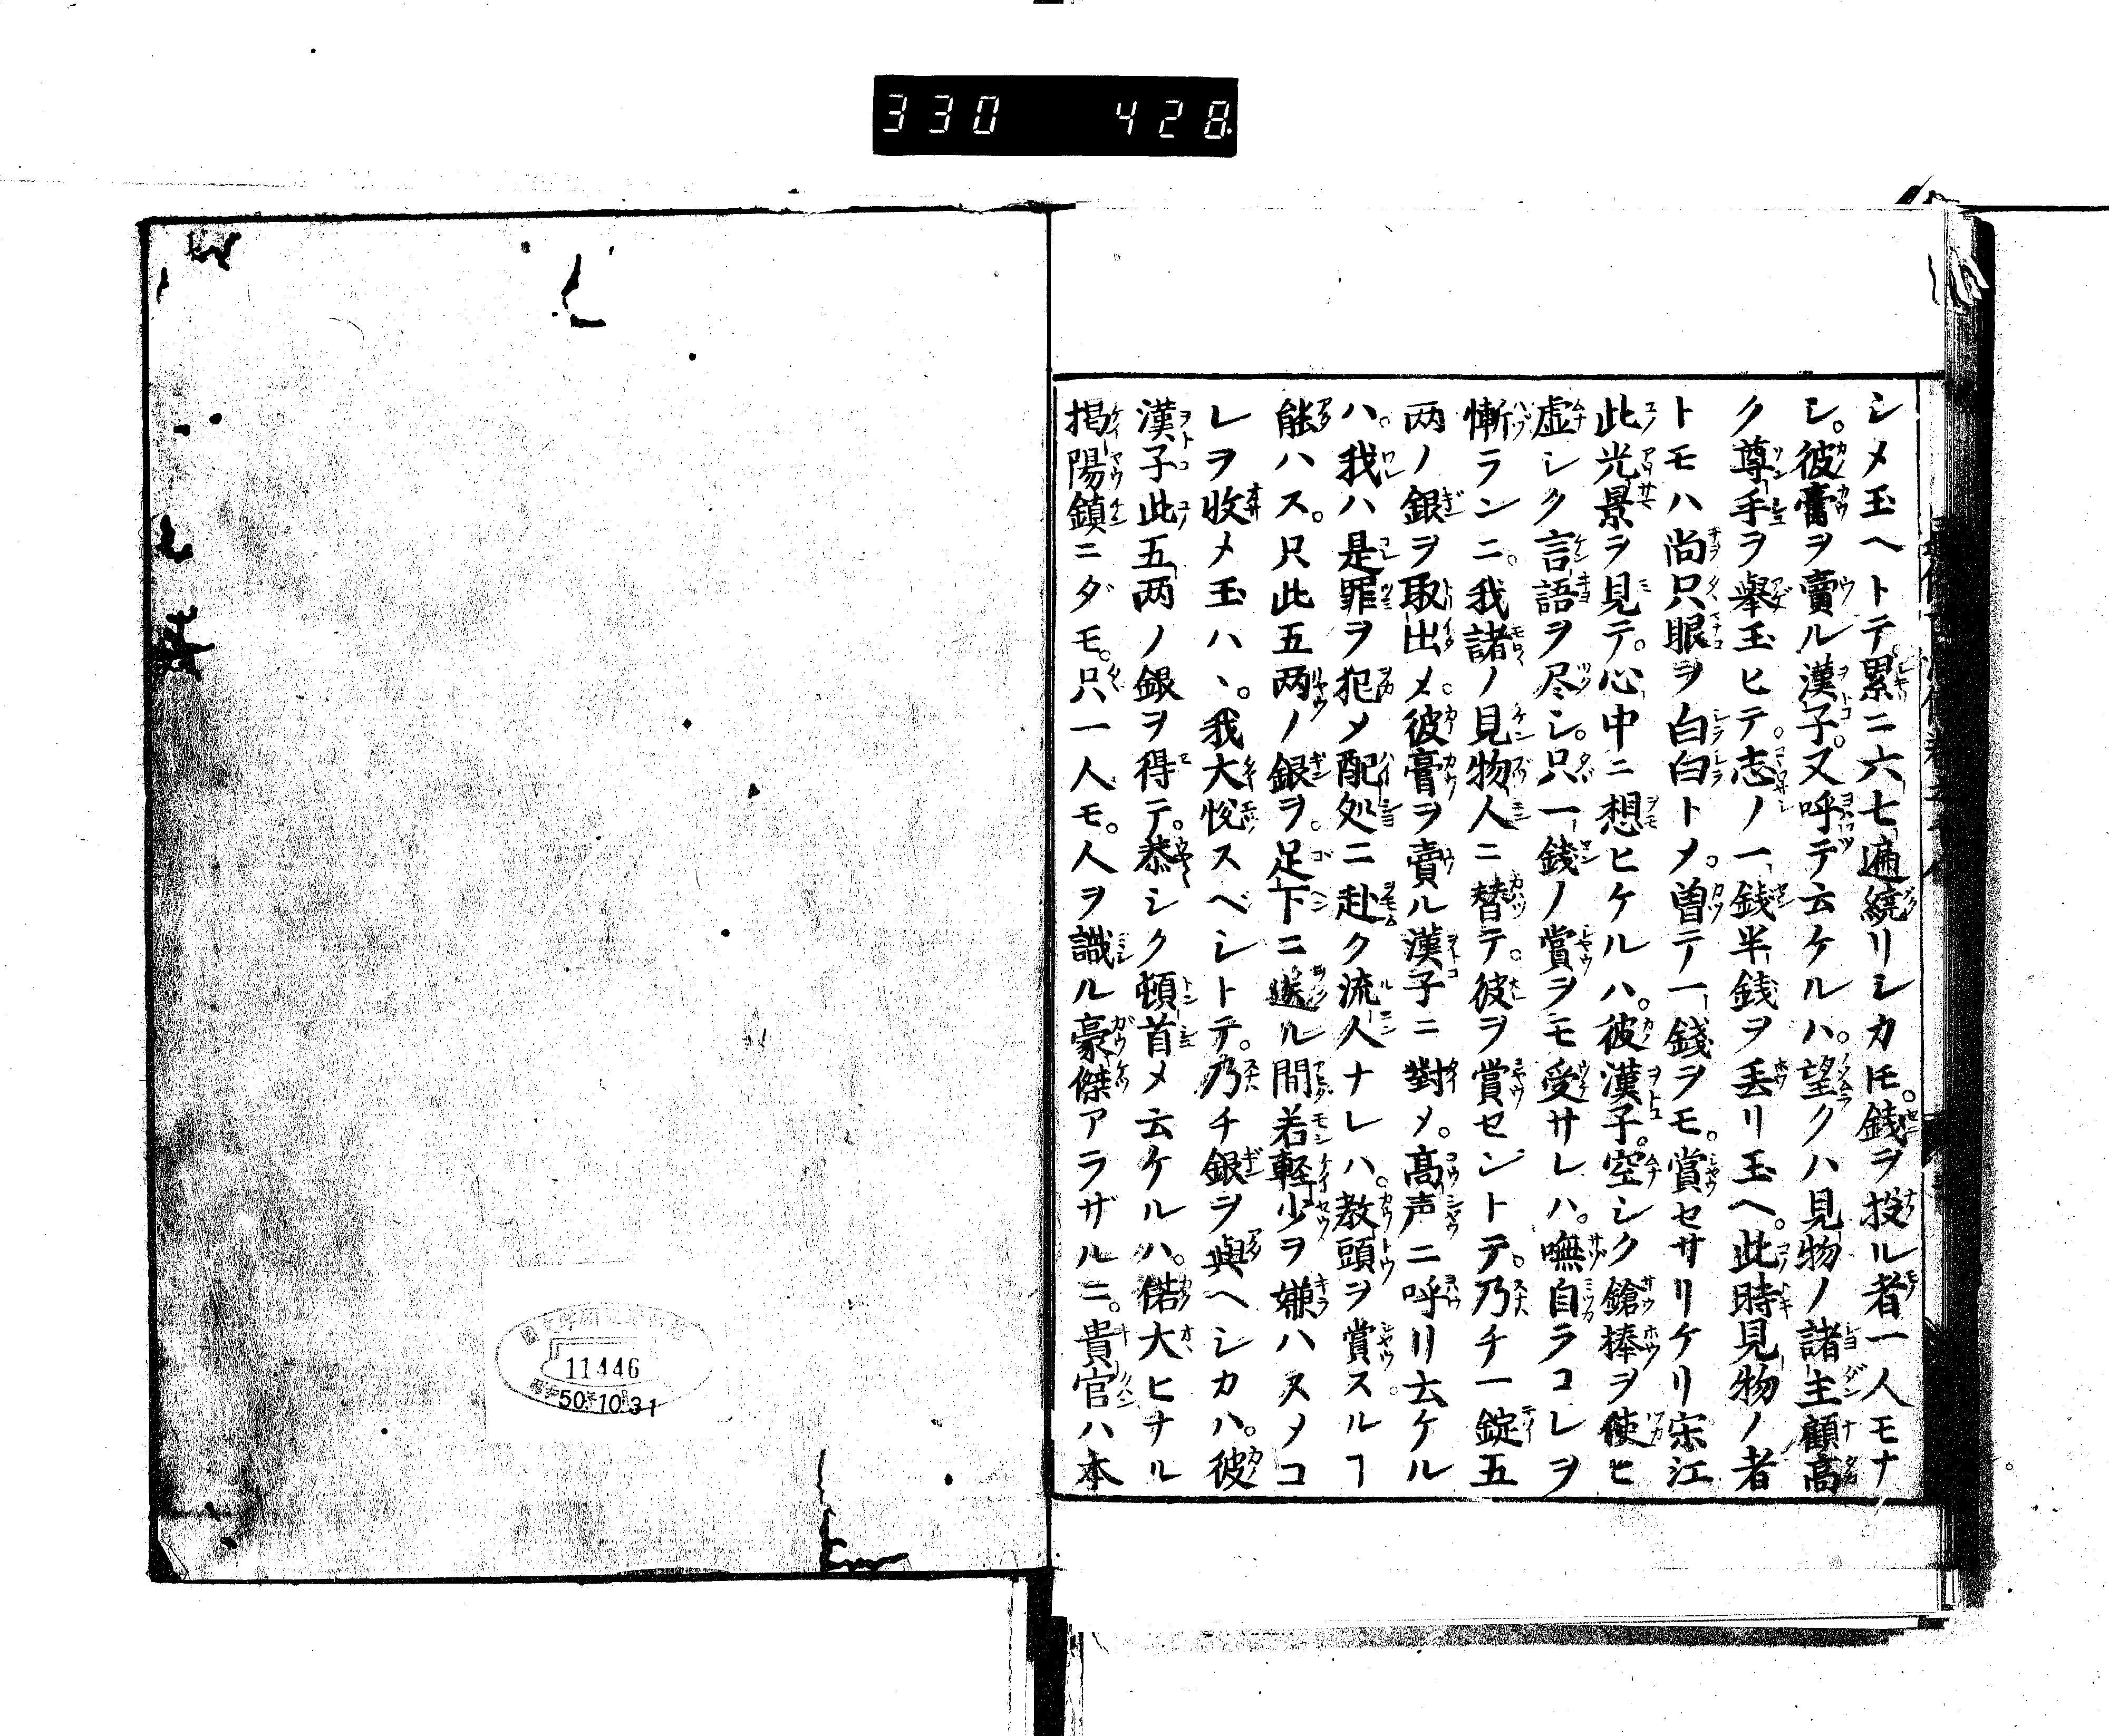 330 428
シメ玉ヘトテ。累ニ六七遍繞リシカ𪜈。錢ヲ投ル者一人モナ
シ。彼膏ヲ賣ル漢子。又呼テ云ケルハ。望クハ見物ノ諸主顧高
ク尊手ヲ舉玉ヒテ。志ノ一錢半錢ヲ丢リ玉ヘ。此時見物ノ者
トモハ尚只眼ヲ白白トメ。曽テ一錢ヲモ。賞セサリケリ宋江
此光景ヲ見テ。心中ニ想ヒケルハ。彼漢子。空シク鎗棒ヲ使ヒ
虚シク言語ヲ尽シ。只一錢ノ賞ヲモ受サレハ。嘸自ラコレヲ
慚ランニ。我諸ノ見物人ニ替テ。彼ヲ賞センドテ。乃チ一錠五
两ノ銀ヲ取出メ。彼膏ヲ賣ル漢子ニ對メ。髙声ニ呼リ云ケル
ハ。我ハ是罪ヲ犯メ配処ニ赴ク流人ナレハ。教頭ヲ賞スルヿ
能ハス。只此五两ノ銀ヲ。足下ニ送ル間若軽少ヲ嫌ハスメコ
レヲ收メ玉ハヽ。我大悦スベシトテ。乃チ銀ヲ與ヘシカハ。彼
漢子此五两ノ銀ヲ得テ。恭シク頓首メ云ケルハ。偌大ヒナル
掲陽鎮ニダモ。只一人モ。人ヲ識ル豪傑アラザルニ。貴官ハ本
11446
50.10.31